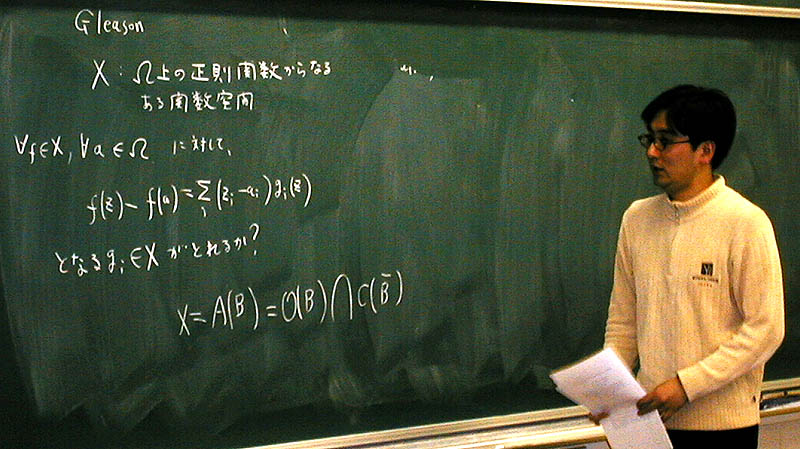 Gleason
X : Ω上の正則関数からなる
ある関数空間
∀f∈X, ∀a∈Ω に対して、
f(z) − f(a) = Σ_i (z_i − a_i) g_i(z)
となる g_i ∈ X がとれるか?
X = A(B) = O(B) ⋂ C(B̄)